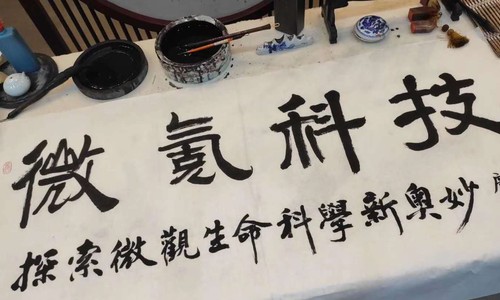 微氪科技
探索微觀生命科學新奧妙